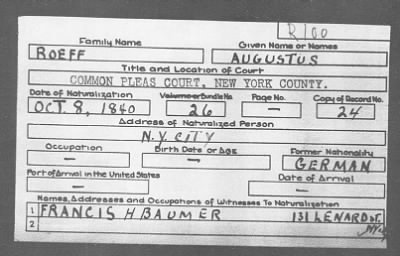 R100
Family Name Given Name or Names
ROEFF AUGUSTUS
Title and Location of Court
COMMON PLEAS COURT, NEW YORK COUNTY.
Date of Naturalization Volume or Bundle No. Page No. Copy of Record No.
OCT. 8, 1840 26 — 24
Address of Naturalized Person
N.Y. CITY
Occupation Birth Date or Age Former Nationality
— — GERMAN
Port of Arrival in the United States Date of Arrival
— —
Names, Addresses and Occupations of Witnesses To Naturalization
1 FRANCIS H BAUMER 131 LENARD ST.
NYC
2